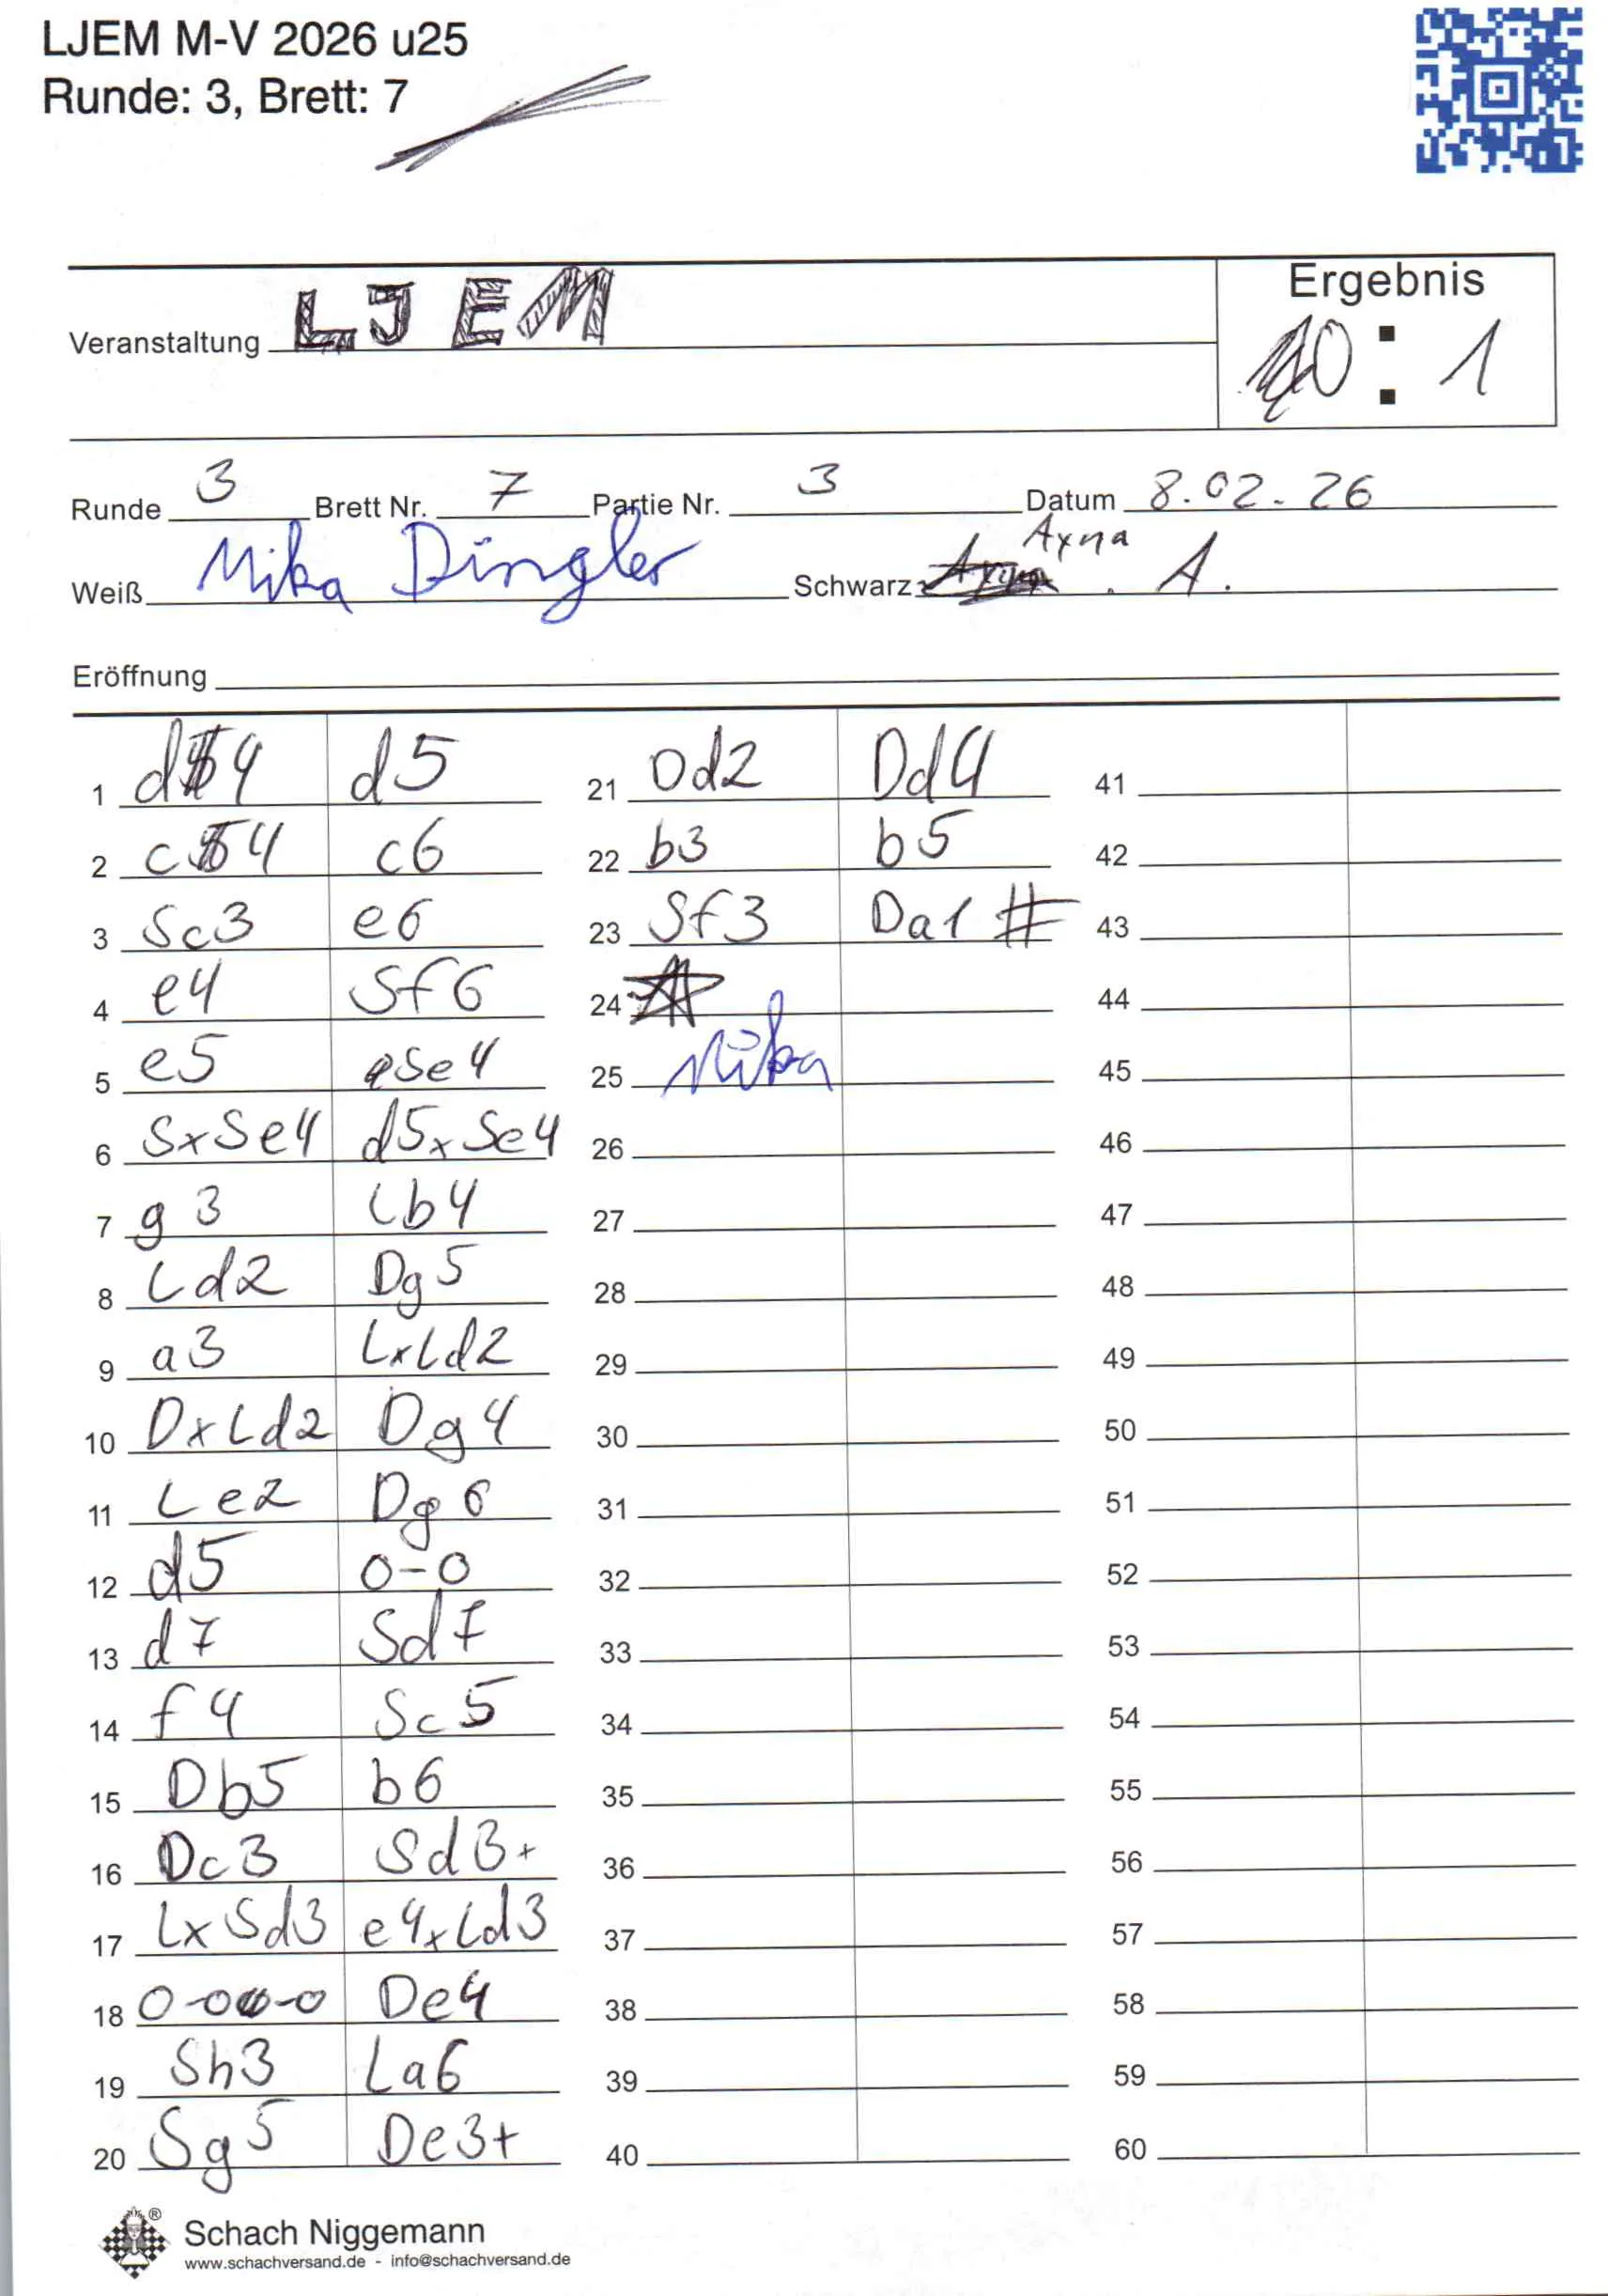 LJEM M-V 2026 u25
Runde: 3, Brett: 7
Ergebnis
Veranstaltung LJEM
0 : 1
Runde 3 Brett Nr. 7 Partie Nr. 3 Datum 8.02.26
Weiß Mika Dingler Schwarz Axna . A.
Eröffnung
1 d4 d5
2 c4 c6
3 Sc3 e6
4 e4 Sf6
5 e5 Se4
6 SxSe4 d5xSe4
7 g3 Lb4
8 Ld2 Dg5
9 a3 LxLd2
10 DxLd2 Dg4
11 Le2 Dg6
12 d5 0-0
13 d7 Sd7
14 f4 Sc5
15 Db5 b6
16 Dc3 Sd3+
17 LxSd3 e4xLd3
18 0-0-0 De4
19 Sh3 La6
20 Sg5 De3+
21 Dd2 Dd4
22 b3 b5
23 Sf3 Da1 #
24
25 Mika
26
27
28
29
30
31
32
33
34
35
36
37
38
39
40
41
42
43
44
45
46
47
48
49
50
51
52
53
54
55
56
57
58
59
60
Schach Niggemann
www.schachversand.de - info@schachversand.de